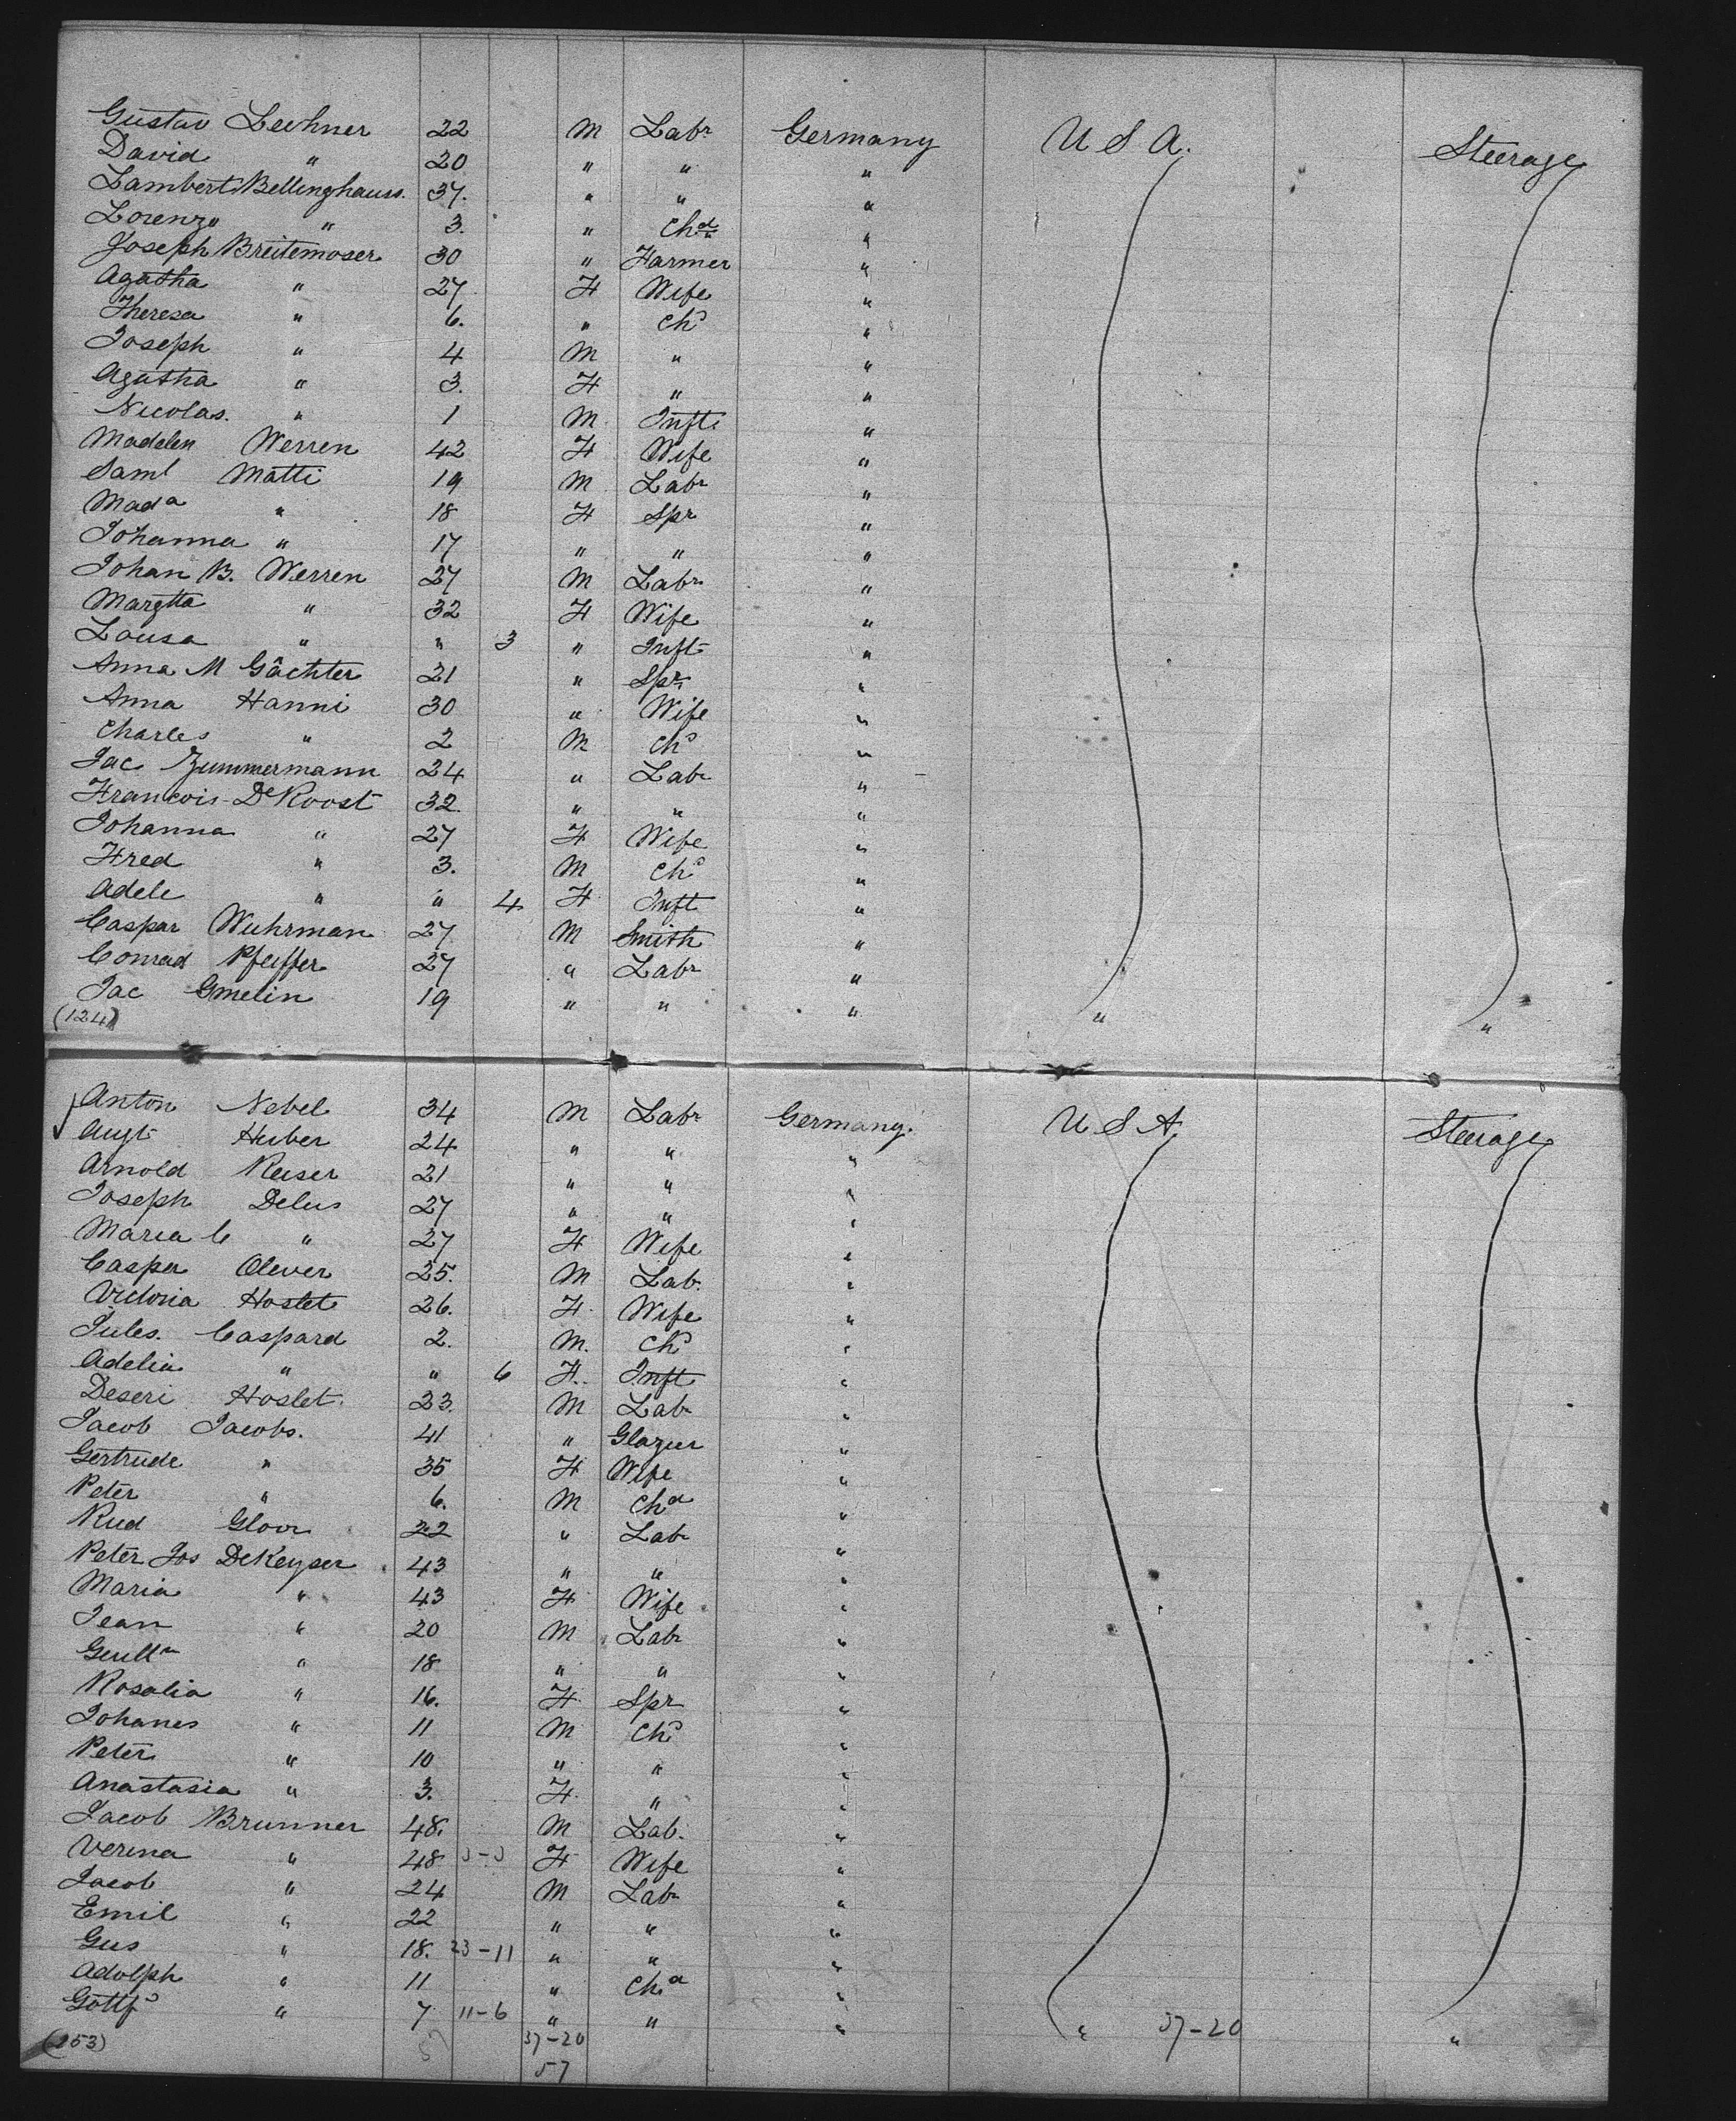 Gustav Lechner 22 M Labr Germany U S A. Steerage
David " 20 " " "
Lambert Bellinghauss. 37. " " "
Lorenzo " 3. " Chd "
Joseph Breitemoser 30 " Farmer "
Agatha " 27 F Wife "
Theresa " 6. " Chd "
Joseph " 4 M " "
Agatha " 3. F " "
Nicolas. " 1 M Inft "
Madelen Werren 42 F Wife "
Saml Matti 19 M Labr "
Mada " 18 F Spr "
Johanna " 17 " " "
Johan B. Werren 27 M Labr "
Margtta " 32 F Wife "
Lousa " " 3 " Inft "
Anna M Gächter 21 " Spr "
Anna Hanni 30 " Wife "
Charles " 2 M Chd "
Jac Zummermann 24 " Labr "
Francois De Roost 32. " " "
Johanna " 27 F Wife "
Fred " 3. M Chd "
Adele " " 4 F Inft "
Caspar Wuhrman 27 M Smith "
Conrad Pfeiffer 27 " Labr "
Jac Gmelin 19 " " " " "
(124)
Anton Nebel 34 M Labr Germany. U S A Steerage
Augt Huber 24 " " "
Arnold Keiser 21 " " "
Joseph Delus 27 " " "
Maria C " 27 F Wife "
Casper Olever 25. M Lab. "
Victoria Hostet 26. F. Wife "
Jules. Caspard 2. M. Chd "
Adelia " " 6 F. Inft "
Deseri Hoslet. 23. M Labr "
Jacob Jacobs. 41 " Glazier "
Gertrude " 35 F Wife "
Peter " 6. M Chd "
Rud Gloor 22 " Labr "
Peter Jos DeKeyser 43 " " "
Maria " 43 F Wife "
Jean " 20 M Labr "
Guillm " 18 " " "
Rosalia " 16. F. Spr "
Johanes " 11 M Chd "
Peter " 10 " " "
Anastasia " 3. F. " "
Jacob Brunner 48. M Lab. "
Verena " 48 F Wife "
Jacob " 24 M Labr "
Emil " 22 " " "
Gus " 18. 23-11 " " "
Adolph " 11 " Chd "
Gottfd " 7 11-6 " " " " 37-20 "
(153) 37-20
57